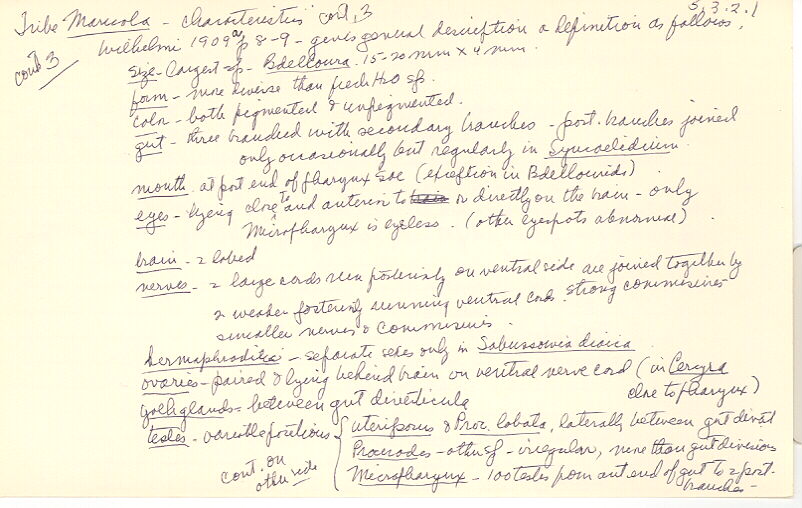 5.3.2.1
Tribe Maricola - characteristics cont. 3
cont 3
Wilhelmi 1909a p 8-9 - gives general description & definition as follows:
size - largest sp - Bdelloura 15-20 mm x 4 mm.
form - more diverse than fresh H2O sp.
color - both pigmented & unpigmented.
gut - three branched with secondary branches - post. branches joined
only occasionally but regularly in Syncoelidium.
mouth at post end of pharynx sac (exception in Bdellourids)
eyes - lying close to and anterior to or directly on the brain - only
Micropharynx is eyeless. (other eyespots abnormal)
brain - 2 lobed
nerves - 2 large cords run posteriorly on ventral side are joined together by
2 weaker running ventral cords. strong commissures
smaller nerves & commissures.
hermaphroditic - separate sexes only in Sabussowia dioica
ovaries - paired & lying behind brain on ventral nerve cord (in Cercyra
close to pharynx)
yolk glands - between gut diverticula
testes - variable positions - { uteriporus & Proc. lobata, laterally between gut divert
Procerodes - other sp - irregular, more than gut divisions
Micropharynx - 100 testes from ant end of gut to 2 post.
branches -
cont. on
other side